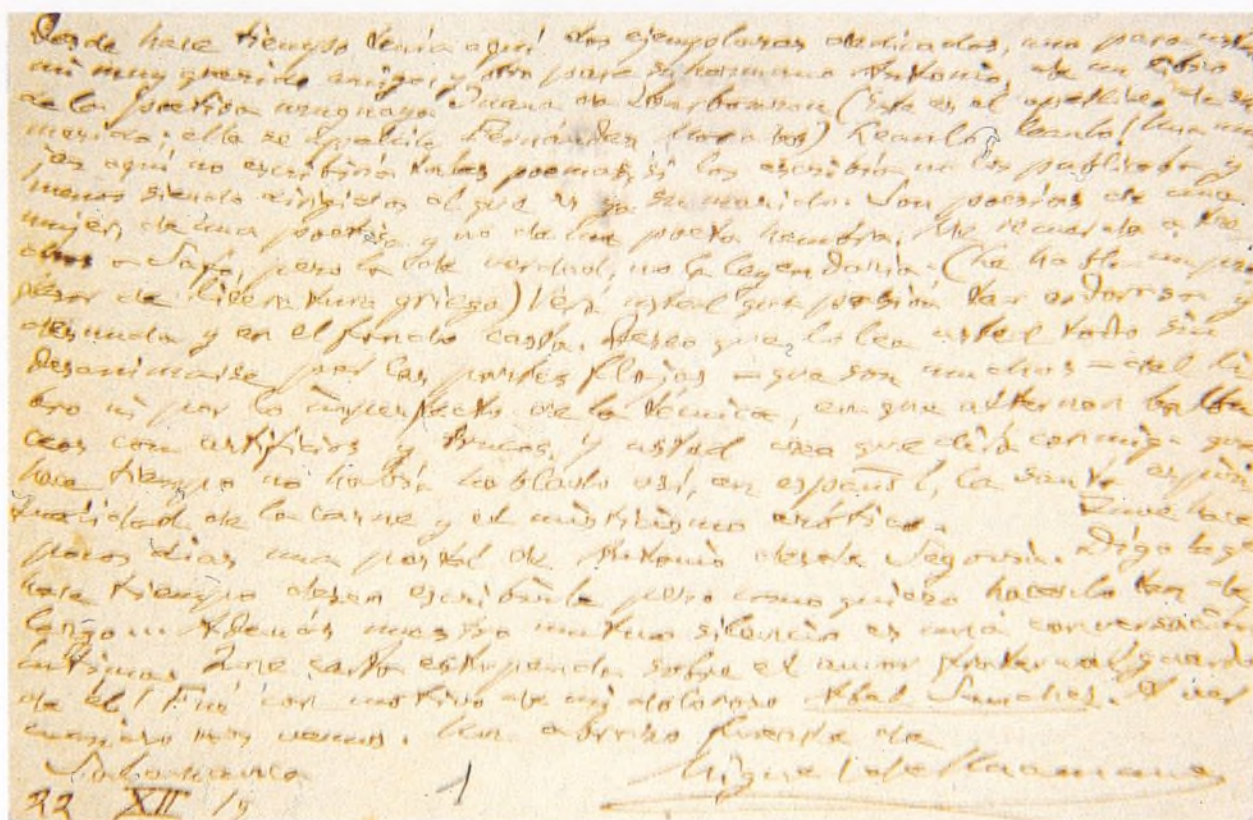 Desde hace tiempo tenía aquí dos ejemplares dedicados, uno para usted
mi muy querido amigo, y otro para su hermano Antonio, de un libro
de la poetisa uruguaya Juana de Ibarbourou (éste es el apellido de su
marido; ella se apellida Fernández Morales) Léanlo, léanlo! Una mu
jer aquí no escribiría tales poemas, si los escribía no los publicaba y
menos siendo dirigidos al que es ya su marido. Son poesías de una
mujer, de una poetisa y no de un poeta hembra. Me recuerda a tre
chos a Safo, pero la de verdad, no la legendaria.
pesar de literatura griega) Verá usted qué pasión tan ardorosa y
desnuda y en el fondo casta. Deseo que lo lea usted todo sin
desanimarse por las partes flojas — que son muchas — del li
bro ni por lo imperfecto de la técnica, en que alternan balbu
ceos con artificios y trucos, y usted creo que dirá conmigo que
hace tiempo no había hablado así, en español, la santa espiri
tualidad de la carne y el misticismo erótico. Tuve hace
pocos días una postal de Antonio desde Segovia. Dígale que
hace tiempo deseo escribirle pero como quiero hacerlo tan de
largo... Además nuestro mutuo silencio es una conversación
íntima. Qué carta estupenda sobre el amor fraternal guardo
de él! Fué con motivo de mi doloroso Abel Sánchez. A ver
cuándo nos vemos. Un abrazo fuerte de
Salamanca 1 Miguel de Unamuno
22 XII 19